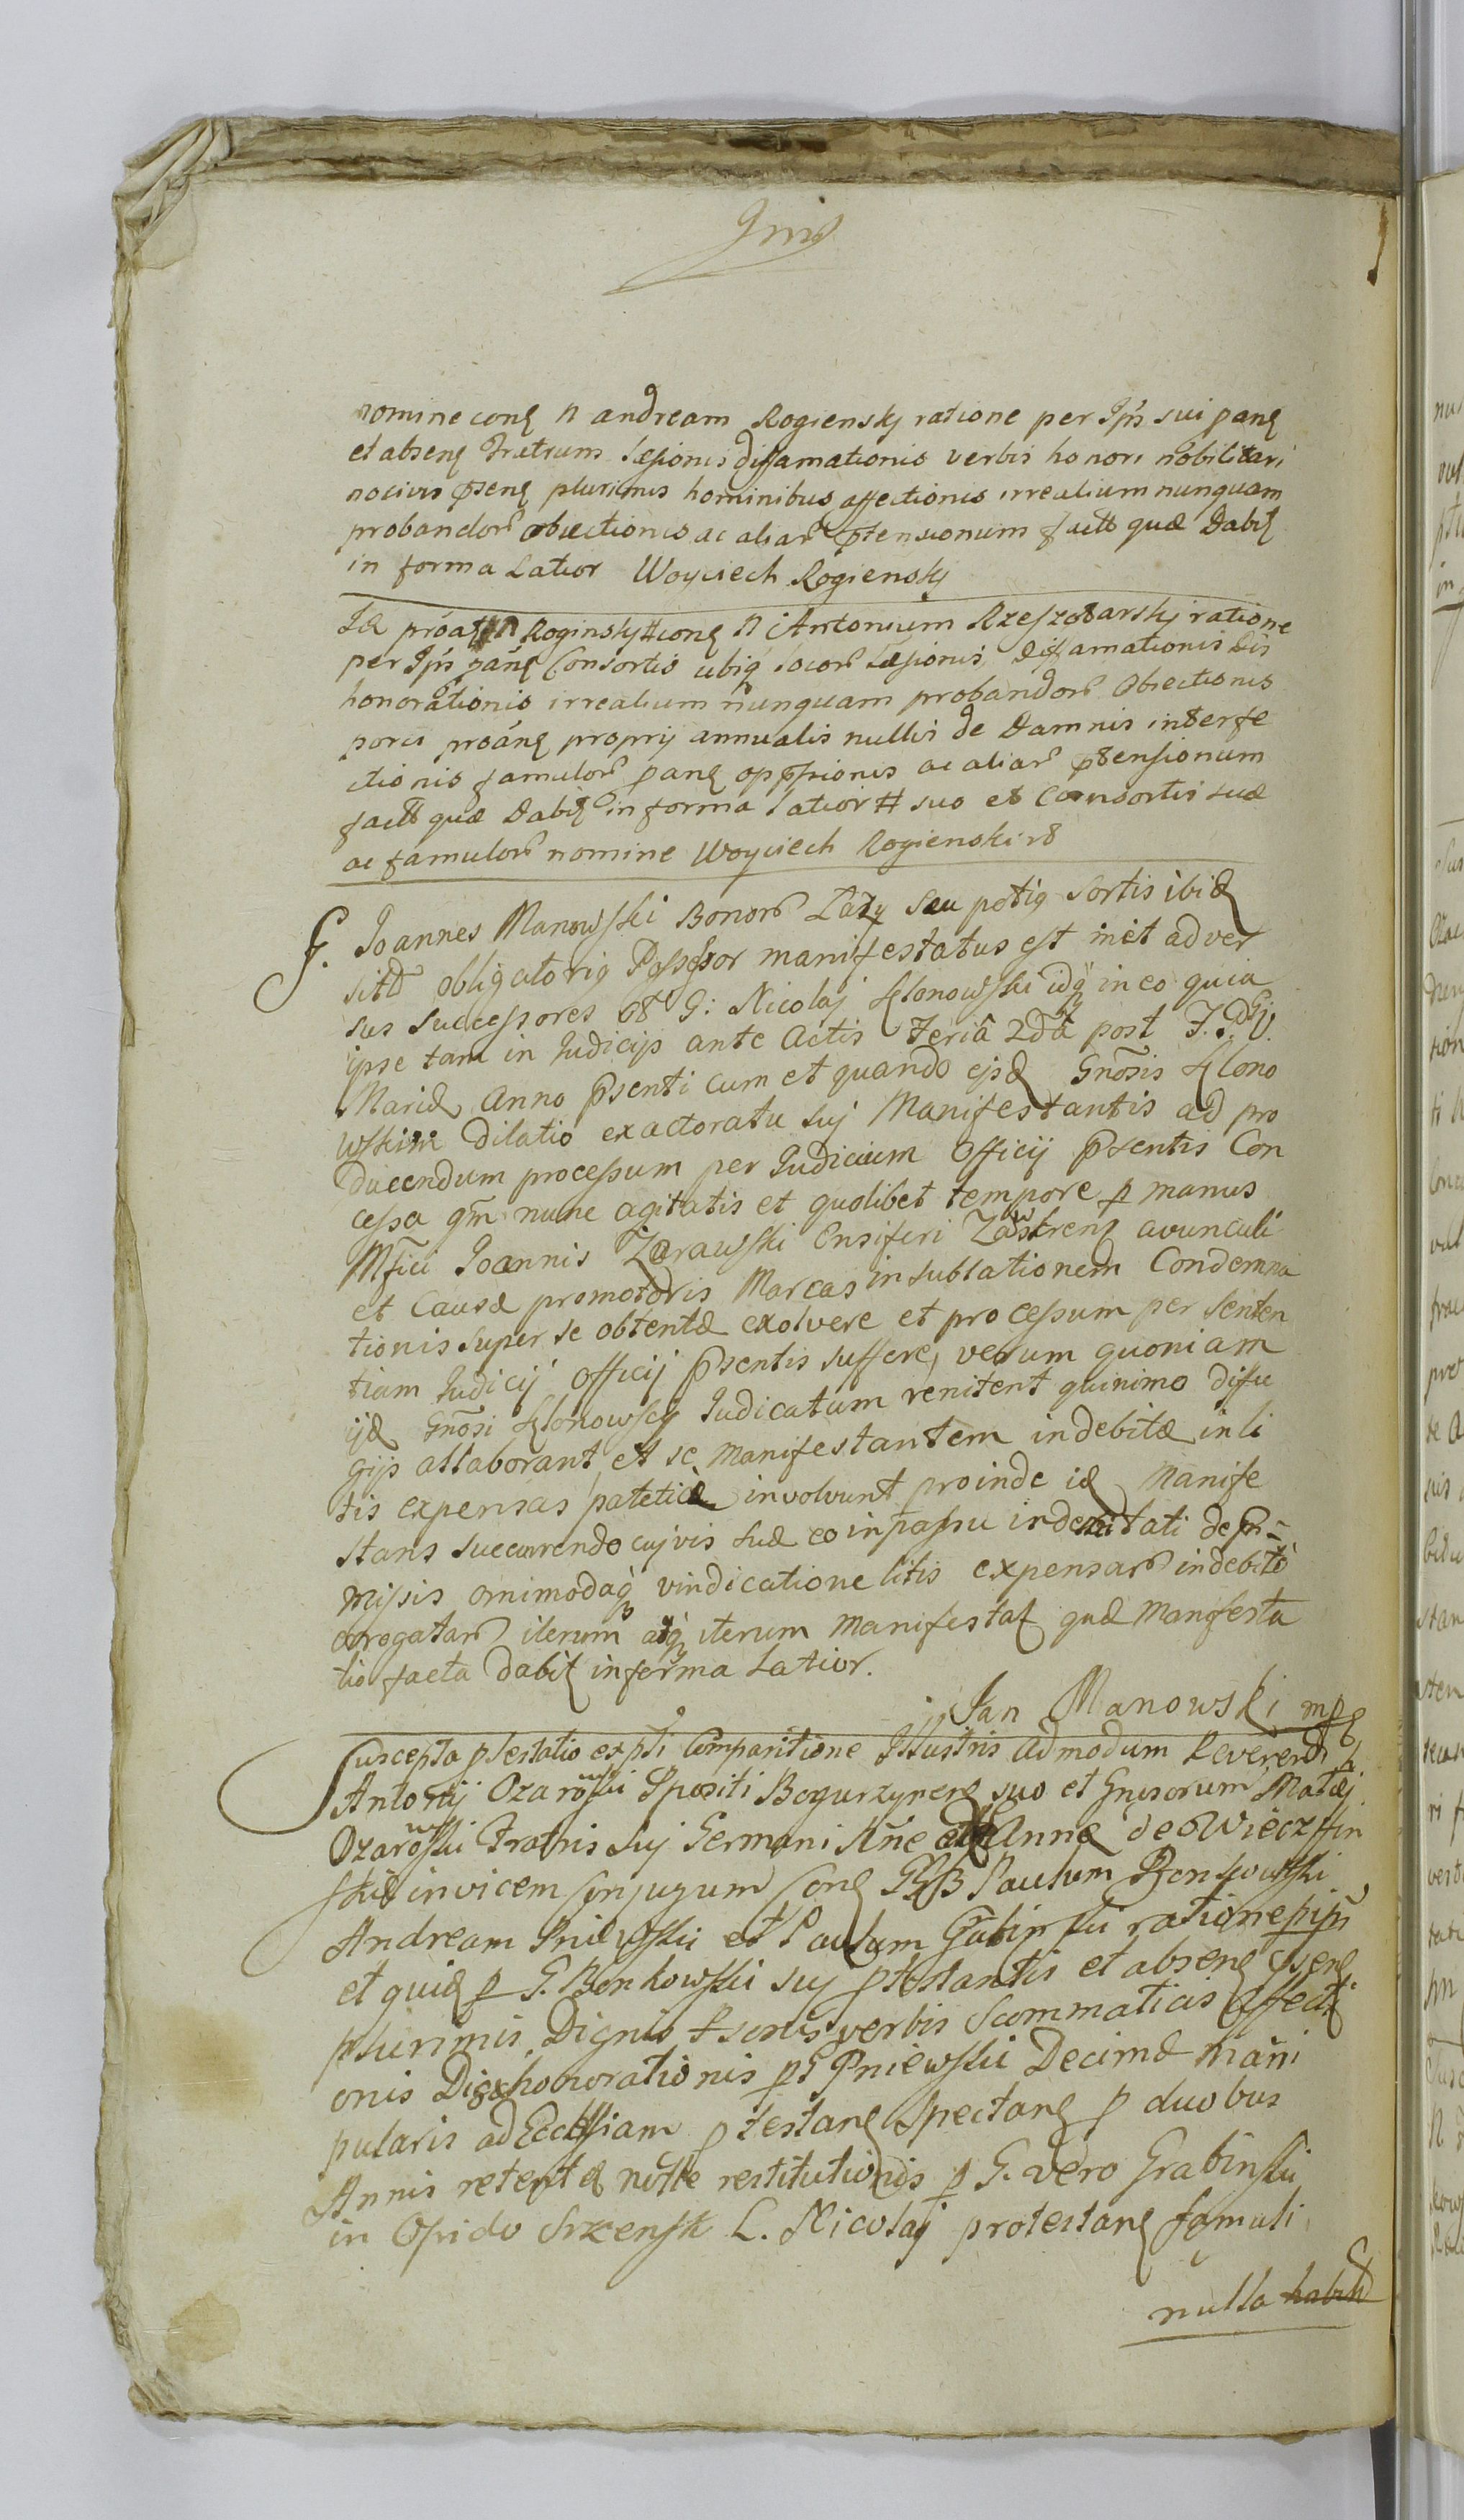 nomine conq n andream Rogiensky ratione per Ipn sui panq
et absenq Fratrum Læsionis diffamationis verbis honori nobilitari
nocivis psenq plurimis hominibus affectionis irrealium nunquam
probandor obiectionis ac aliar ptensionum quæ dabit
in forma Latior Woyciech Rogiensky
Id Roginsky # conq n Antonium Rzeszotarsky ratione
per Ipn panq Consortis ubiq locor Læsionis diffamationis Dis
honorationis irrealium nunquam probandor Obiectionis
porci proanq proprij annualis nullis de Damnis interfe
ctionis famulor panq ac aliar ptensionum
quæ dabit in forma latior # suo et Consortis suæ
ac famulor nomine Woyciech Rogienski
G. Joannes Manowski Bonor Lazy seu potiq sortis ibid
obligatoriq Possessor manifestatus est adver
sus successores G: Nicolaj Klonowski idq in eo quia
ipse tam in Judicijs ante Actis Feriâ 2dâ post F.
Mariæ Anno psenti cum et quando ejsd Gnosis Klono
wskim dilatio exactoratu suj Manifestantis ad pro
ducendum processum per Judicium Officij psentis Con
cessa qm nunc agitatis et quolibet tempore p manus
Mfici Joannis Zorawski Ensiferi Zawskrenq avunculi
et Causæ promotoris Marcas in sublationem Condemna
tionis super se obtentæ exolvere et processum per senten
tiam Judicij Officij psentis suffere, verum quoniam
ijd Gnosi Klonowscy Judicatum renitent quinimo diffu
gijs allaborant et se Manifestantem indebitæ in li
tis expensas involvunt proinde id Manife
stans succurrendo cujvis suæ eo in passu indemnitati de præ
misis omnimodaq vindicatione litis expensar indebitè
erogatar iterum atq iterum Manifestat quæ Manifesta
tio facta dabit in forma Latior.
Jan Manowski mpp
Suscepta ptestatio ex psti Comparitione Illustris admodum Reverendi
Antonij Ozarowski Ppositi Bogurzynenq suo et Gnosorum Matæj
Ozarowski Fratris suj Germani Anne de Wieczffin
skie invicem Conjugum Conq GGB Paulum Bonkowski
Andream Pniewski et Paulum Grabinski ratione p ipn
et quid p G. Bonkowski suj ptestantis et absenq psenq
plurimis Dignis psonis verbis Scommaticis Affecti
onis Dishonorationis p G Pniewski Decimæ mani
pularis ad Ecclesiam ptestanq Spectanq p duobus
Annis retentæ nolle restitutionis p G. vero Grabinski
in Opido Srzensk L. Nicolaj protestanq famuli
nulla